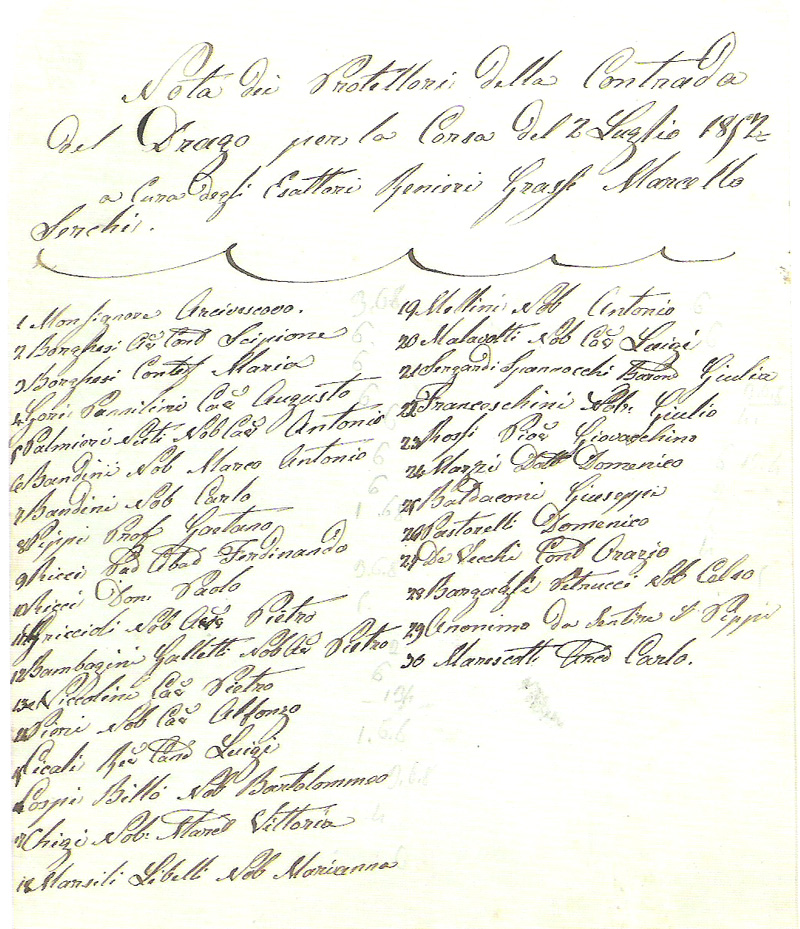 Nota dei Protettori della Contrada
del Drago per la Corsa del 2 Luglio 1852
a Cura degli Esattori Renieri Grasse Marcello
Serchi.
1 Monsignore Arcivescovo.
2 Borghesi Cav Scipione
3 Borghesi Contes Maria
4 Gori Pannilini Cav Augusto
5 Palmieri Nuti Nob Cav Antonio
6 Bandini Nob Marco Antonio
7 Bandini Nob Carlo
8 Pippi Prof Gaetano
9 Ricci Pad Abad Ferdinando
10 Ricci Don. Paolo
11 Griccioli Nob Pietro
12 Bambagini Galletti Nob Cav Pietro
13 Niccolini Cav Pietro
14 Piori Nob Cav Alfonzo
Cicali Luigi
Cospi Billò Nob Bartolommeo
17 Chigi Nob: March Vittoria
18 Marsili Libelli Nob Marianna
19 Mellini Nob Antonio
20 Malavolti Nob Cav Luigi
21 Sergardi Spannocchi Giulia
22 Franceschini Nob: Giulio
23 Rossi Giovacchino
24 Marzi Dott Domenico
25 Baldaconi Giuseppe
26 Pastorelli Domenico
27 De Vecchi Cont Orazio
28 Bargagli Petrucci Nob Celso
29 Anonimo da Sentire il Pippi
30 Marescotti Carlo.